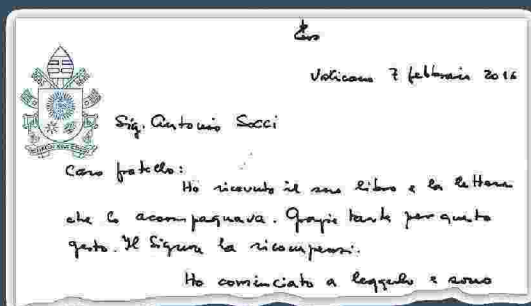 Vaticano 7 febbraio 2016
Sig. Antonio Socci
Caro fratello:
Ho ricevuto il suo libro e la lettera
che lo acompagnava. Grazie tante per questo
gesto. Il Signore la ricompensi.
Ho cominciato a leggerlo e sono